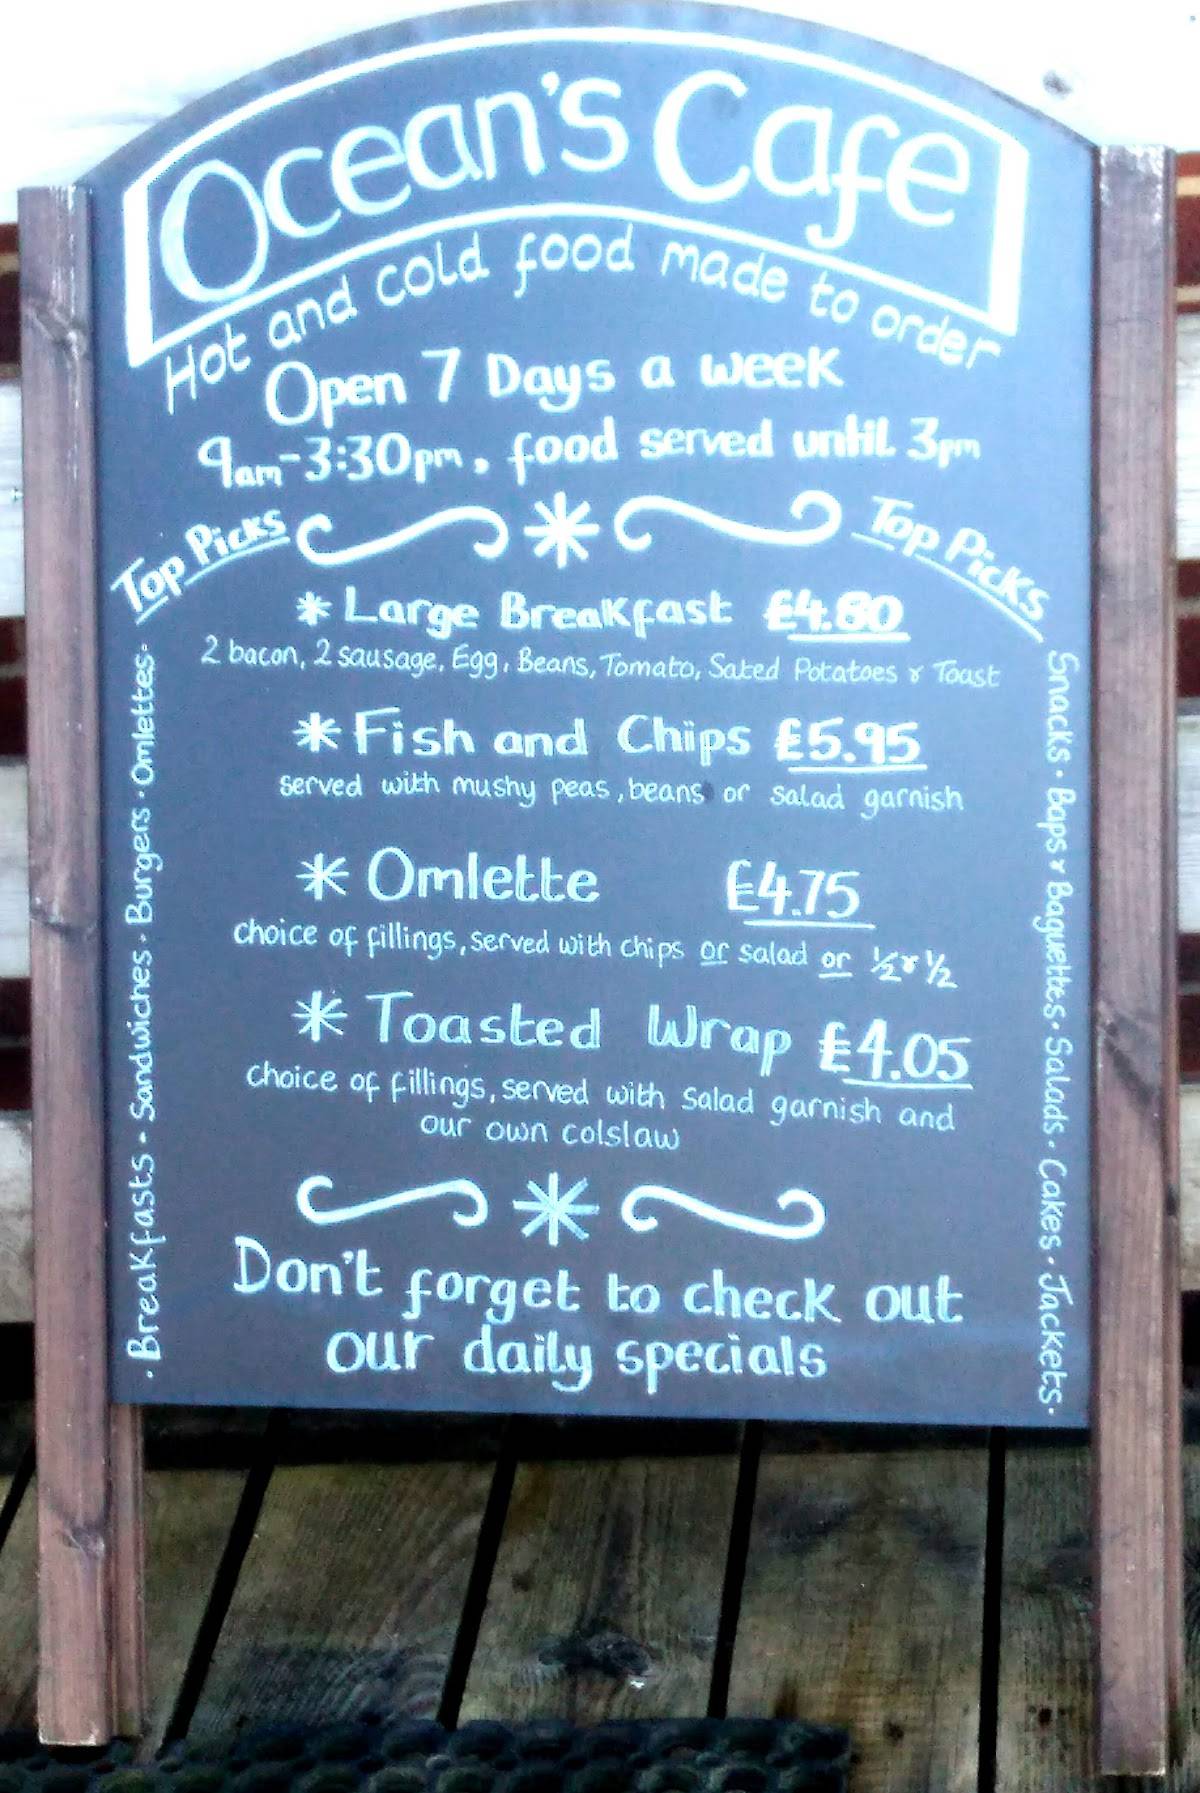 Ocean's Cafe
Hot and cold food made to order
Open 7 Days a week
9am-3:30pm, food served until 3pm
Top Picks
Top Picks
* Large Breakfast £4.80
2 bacon, 2 sausage, Egg, Beans, Tomato, Sated Potatoes & Toast
* Fish and Chips £5.95
served with mushy peas, beans or salad garnish
* Omlette £4.75
choice of fillings, served with chips or salad or ½ & ½
* Toasted Wrap £4.05
choice of fillings, served with salad garnish and
our own colslaw
Don't forget to check out
our daily specials
· Breakfasts · Sandwiches · Burgers · Omlettes ·
Snacks · Baps & Baguettes · Salads · Cakes · Jackets ·